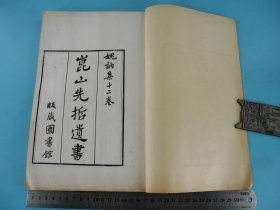 妮訥集十二卷
崑山先哲遺書
版藏圖書館